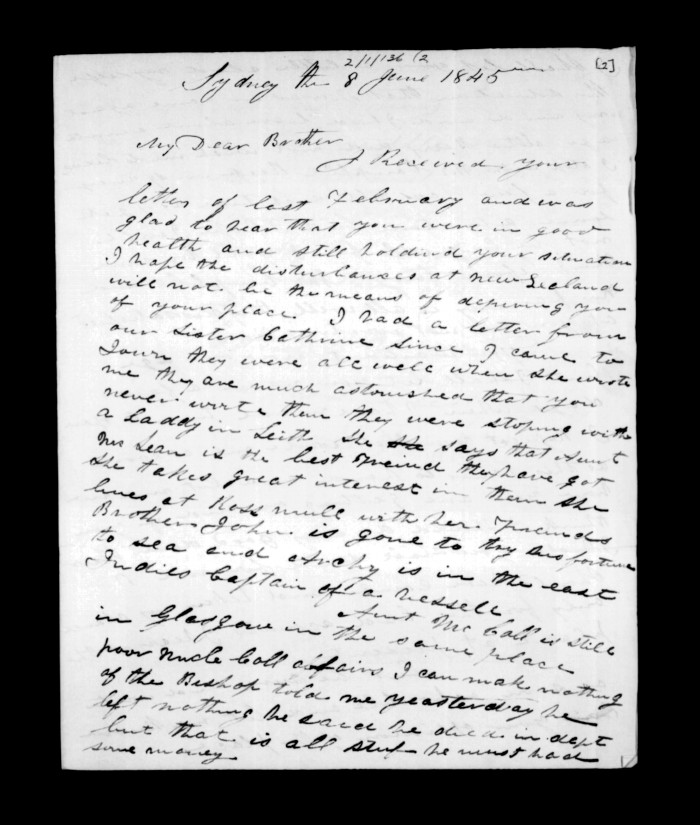 2/1/136 (2
[2]
Sydney the 8 June 1845
My Dear Brother
I Received your
letter of last February and was
glad to hear that you were in good
health and still holdind your situation
I hope the disturbances at new Zeeland
will not be the means of depriving you
of your place. I had a letter from
our Sister Cathrine since I came to
Town they were all well when she wrote
me they are much astonished that you
never wrote them they were stoping with
a Laddy in Leith She she says that Aunt
Mrs Lean is the best Freind they have got
She takes great interest in them She
lives at Ross mull with her Freinds
Brother John is gone to try his fortune
to sea and Archy is in the east
Indies Captain of a Vessell
Aunt Mc Coll is still
in Glasgow in the same place
poor uncle Coll affairs I can make nothing
of the Bishop told me yeasterday he
left nothing he said he died in dept
but that is all stuf he must had
some money